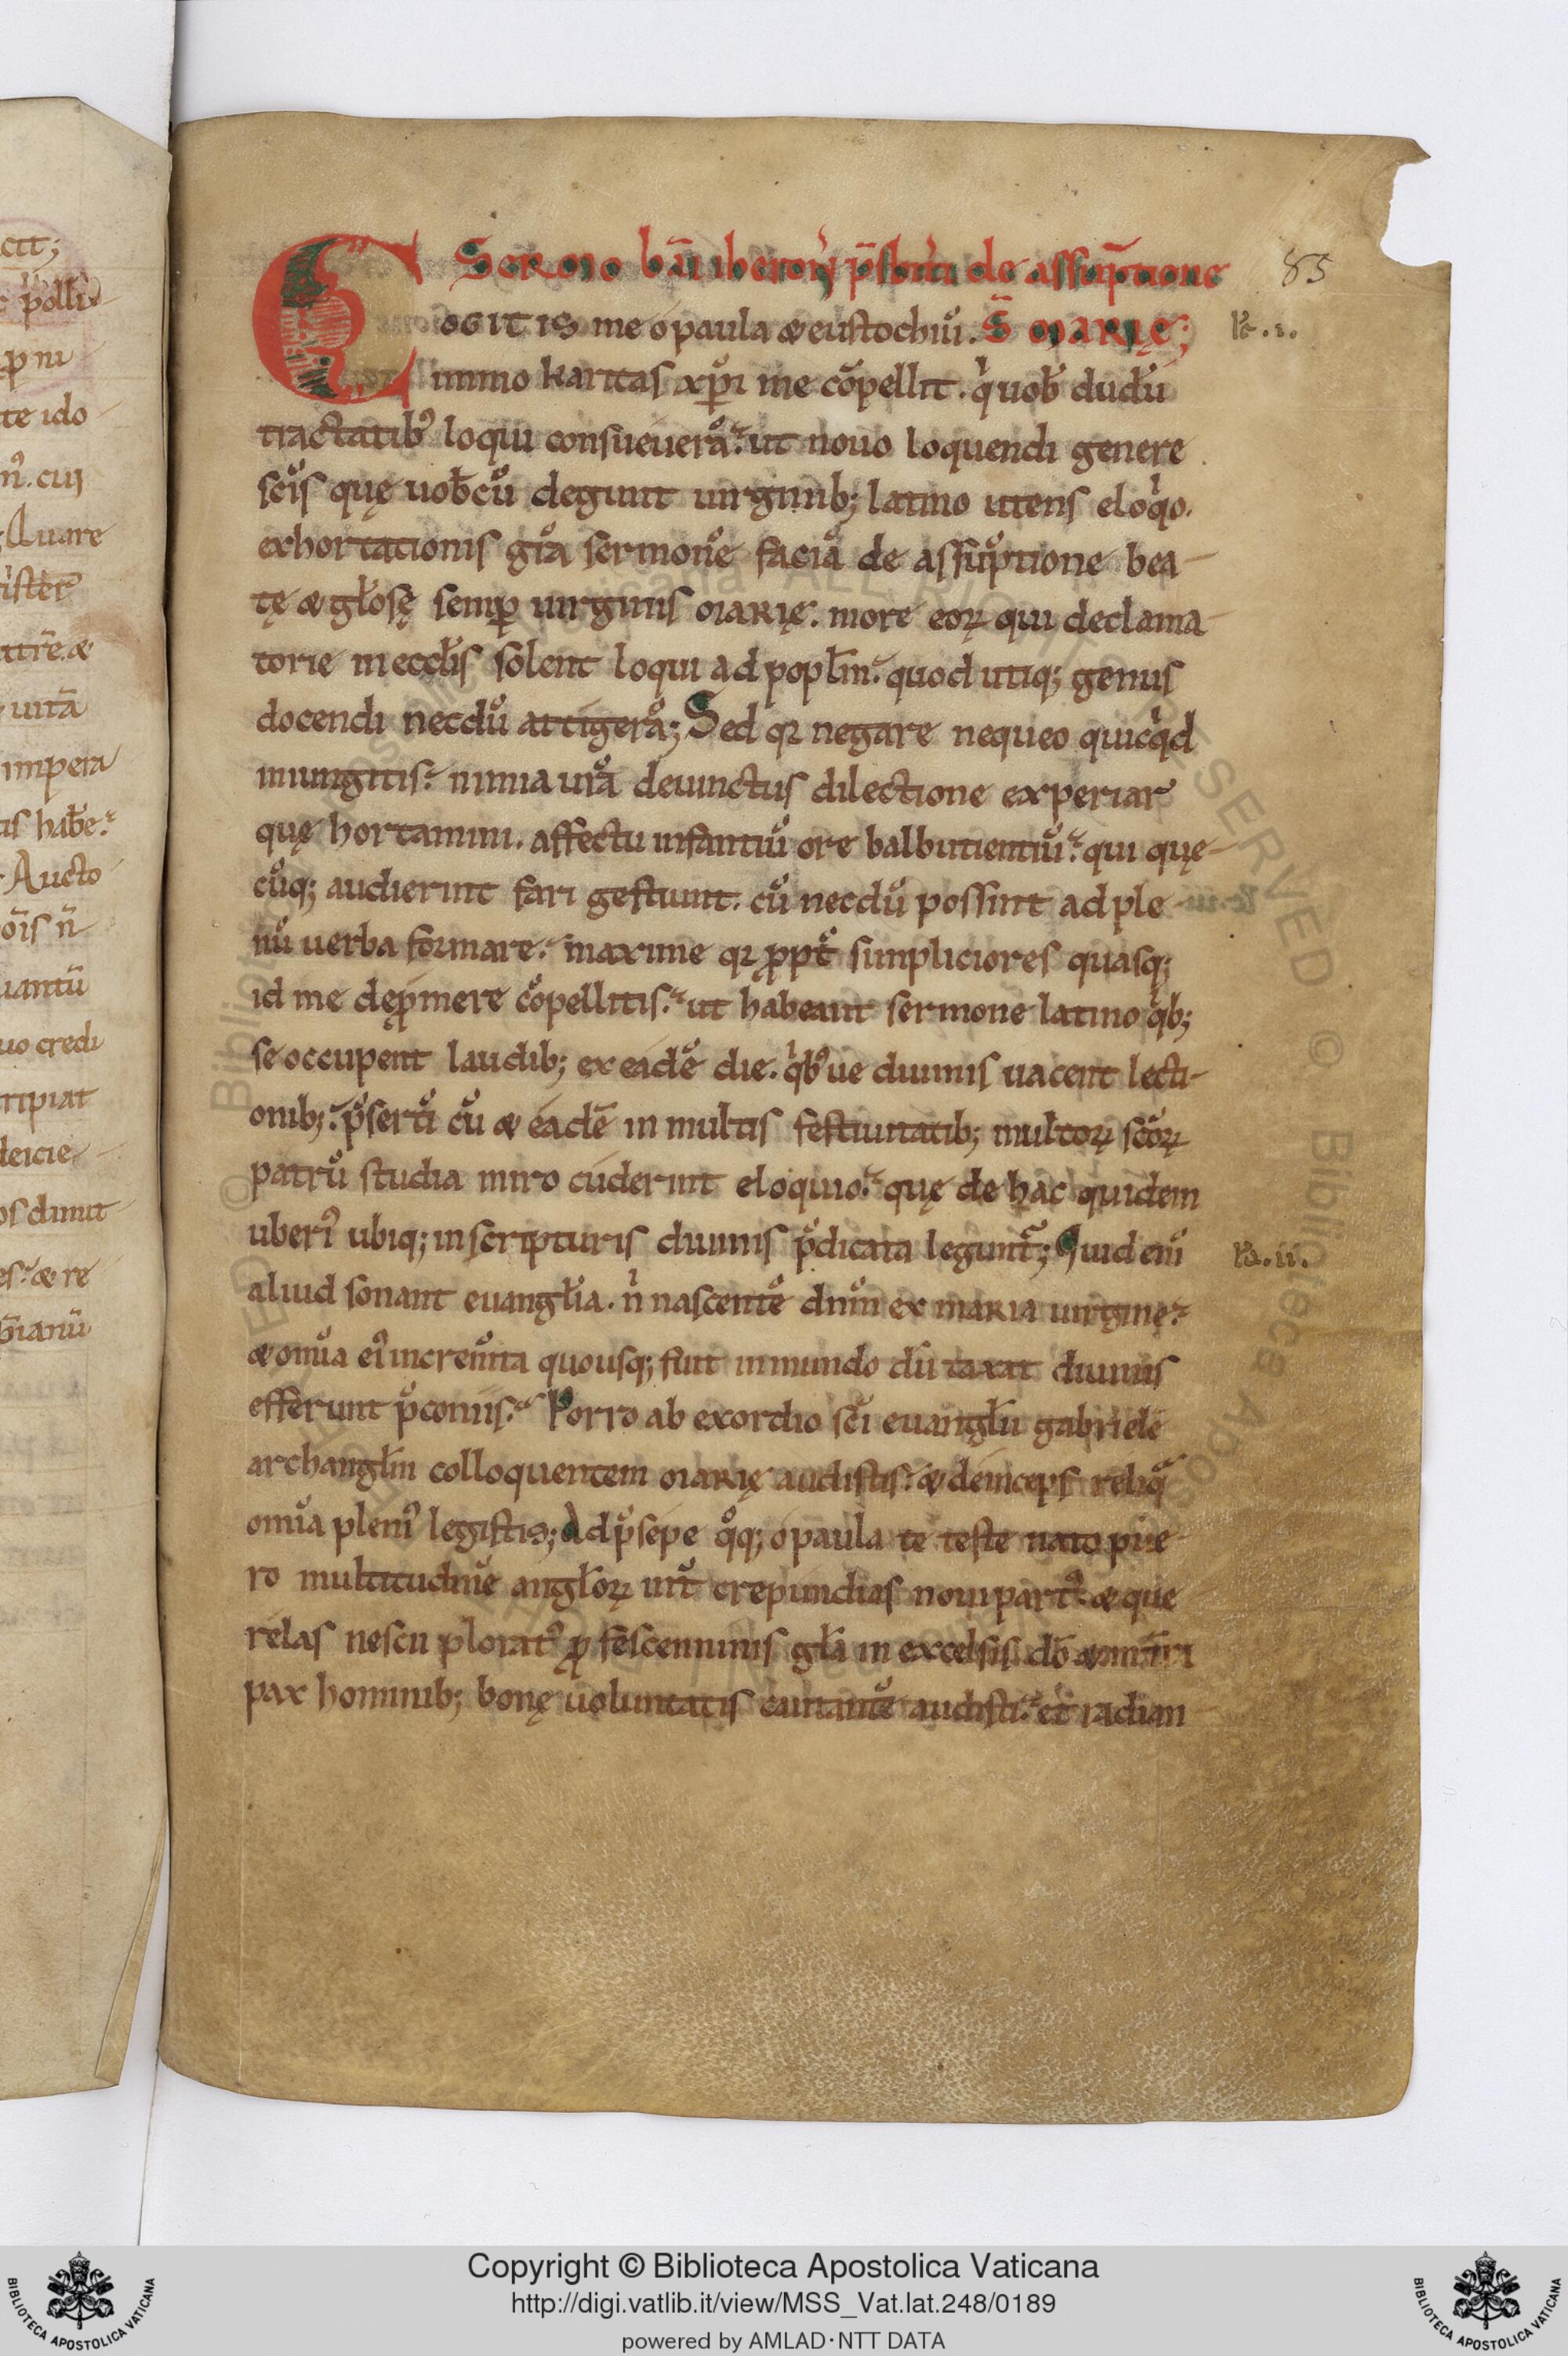 Sermo bāi iheronẏ p̄sbrı̄i de assūptione
COGITIS me o paula & eustochiū. S̄ MARIĘ; 
immo karitas xp̄i me cōpellit. qͥ uob̄ dudū
tractatibꝰ loqui consueuerā. ut nouo loquendi genere
sc̄is quę uob̄cū degunt uirginib; latino utens eloqͥo.
exhortationis gr̄a sermonē faciā de assūptione bea-
tę & gl̄osę semp̱ uirginis MARIĘ. more eoꝝ qui declama
torie in eccl̄is solent loqui ad popl̄m. quod utiq; genus
docendi necdū attigerā; Sed qꝛ negare nequeo quicqͥd
iniungitis. nimia ur̄a deuinctus dilectione experiar
quę hortamini. affectu infantiū ore balbutientiū. qui quę-
cūq; audierint fari gestiunt. cū necdū possint ad ple
nū uerba formare. maxime qꝛ ꝓpt̄ simpliciores quasq;
id me dep̱mere cōpellitis. ut habeant sermone latino qͥb;
se occupent laudib; ex eadē die. qͥbꝰue diuinis uacent lecti-
onib;. p̄sertī cū & eadē in multis festiuitatib; multoꝝ sc̄oꝝ
patrū studia miro cuderint eloquio. quę de hac quidem
uberiꝰ ubiq; in scripturis diuinis p̄dicata legunt̄; Quid enī
aliud sonant euangl̄ia. nͥ nascentē dn̄m ex MARIA uirgine.
& om̄a eiꝰ increm̄ta quousq; fuit in mundo dū taxat diuinis
efferunt p̄coniis. Porro ab exordio sc̄i euangl̄ii gabriele
archangl̄m colloquentem MARIĘ audistis. & deinceps reliqͣ
om̄a pleniꝰ legistis; Ad p̄sepe qͦq; o paula te teste nato pue
ro multitudinē angl̄oꝝ int̄ crepundias noui partꝰ & que
relas nescii ploratꝰ ꝓ fescenninis gl̄a in excelsis dō & in t̄ri
pax hominib; bonę uoluntatis cantantē audisti. et radian
83
R.i.
R.ii.
Copyright © Biblioteca Apostolica Vaticana
http://digi.vatlib.it/view/MSS_Vat.lat.248/0189
powered by AMLAD·NTT DATA
BIBLIOTECA APOSTOLICA VATICANA
BIBLIOTECA APOSTOLICA VATICANA